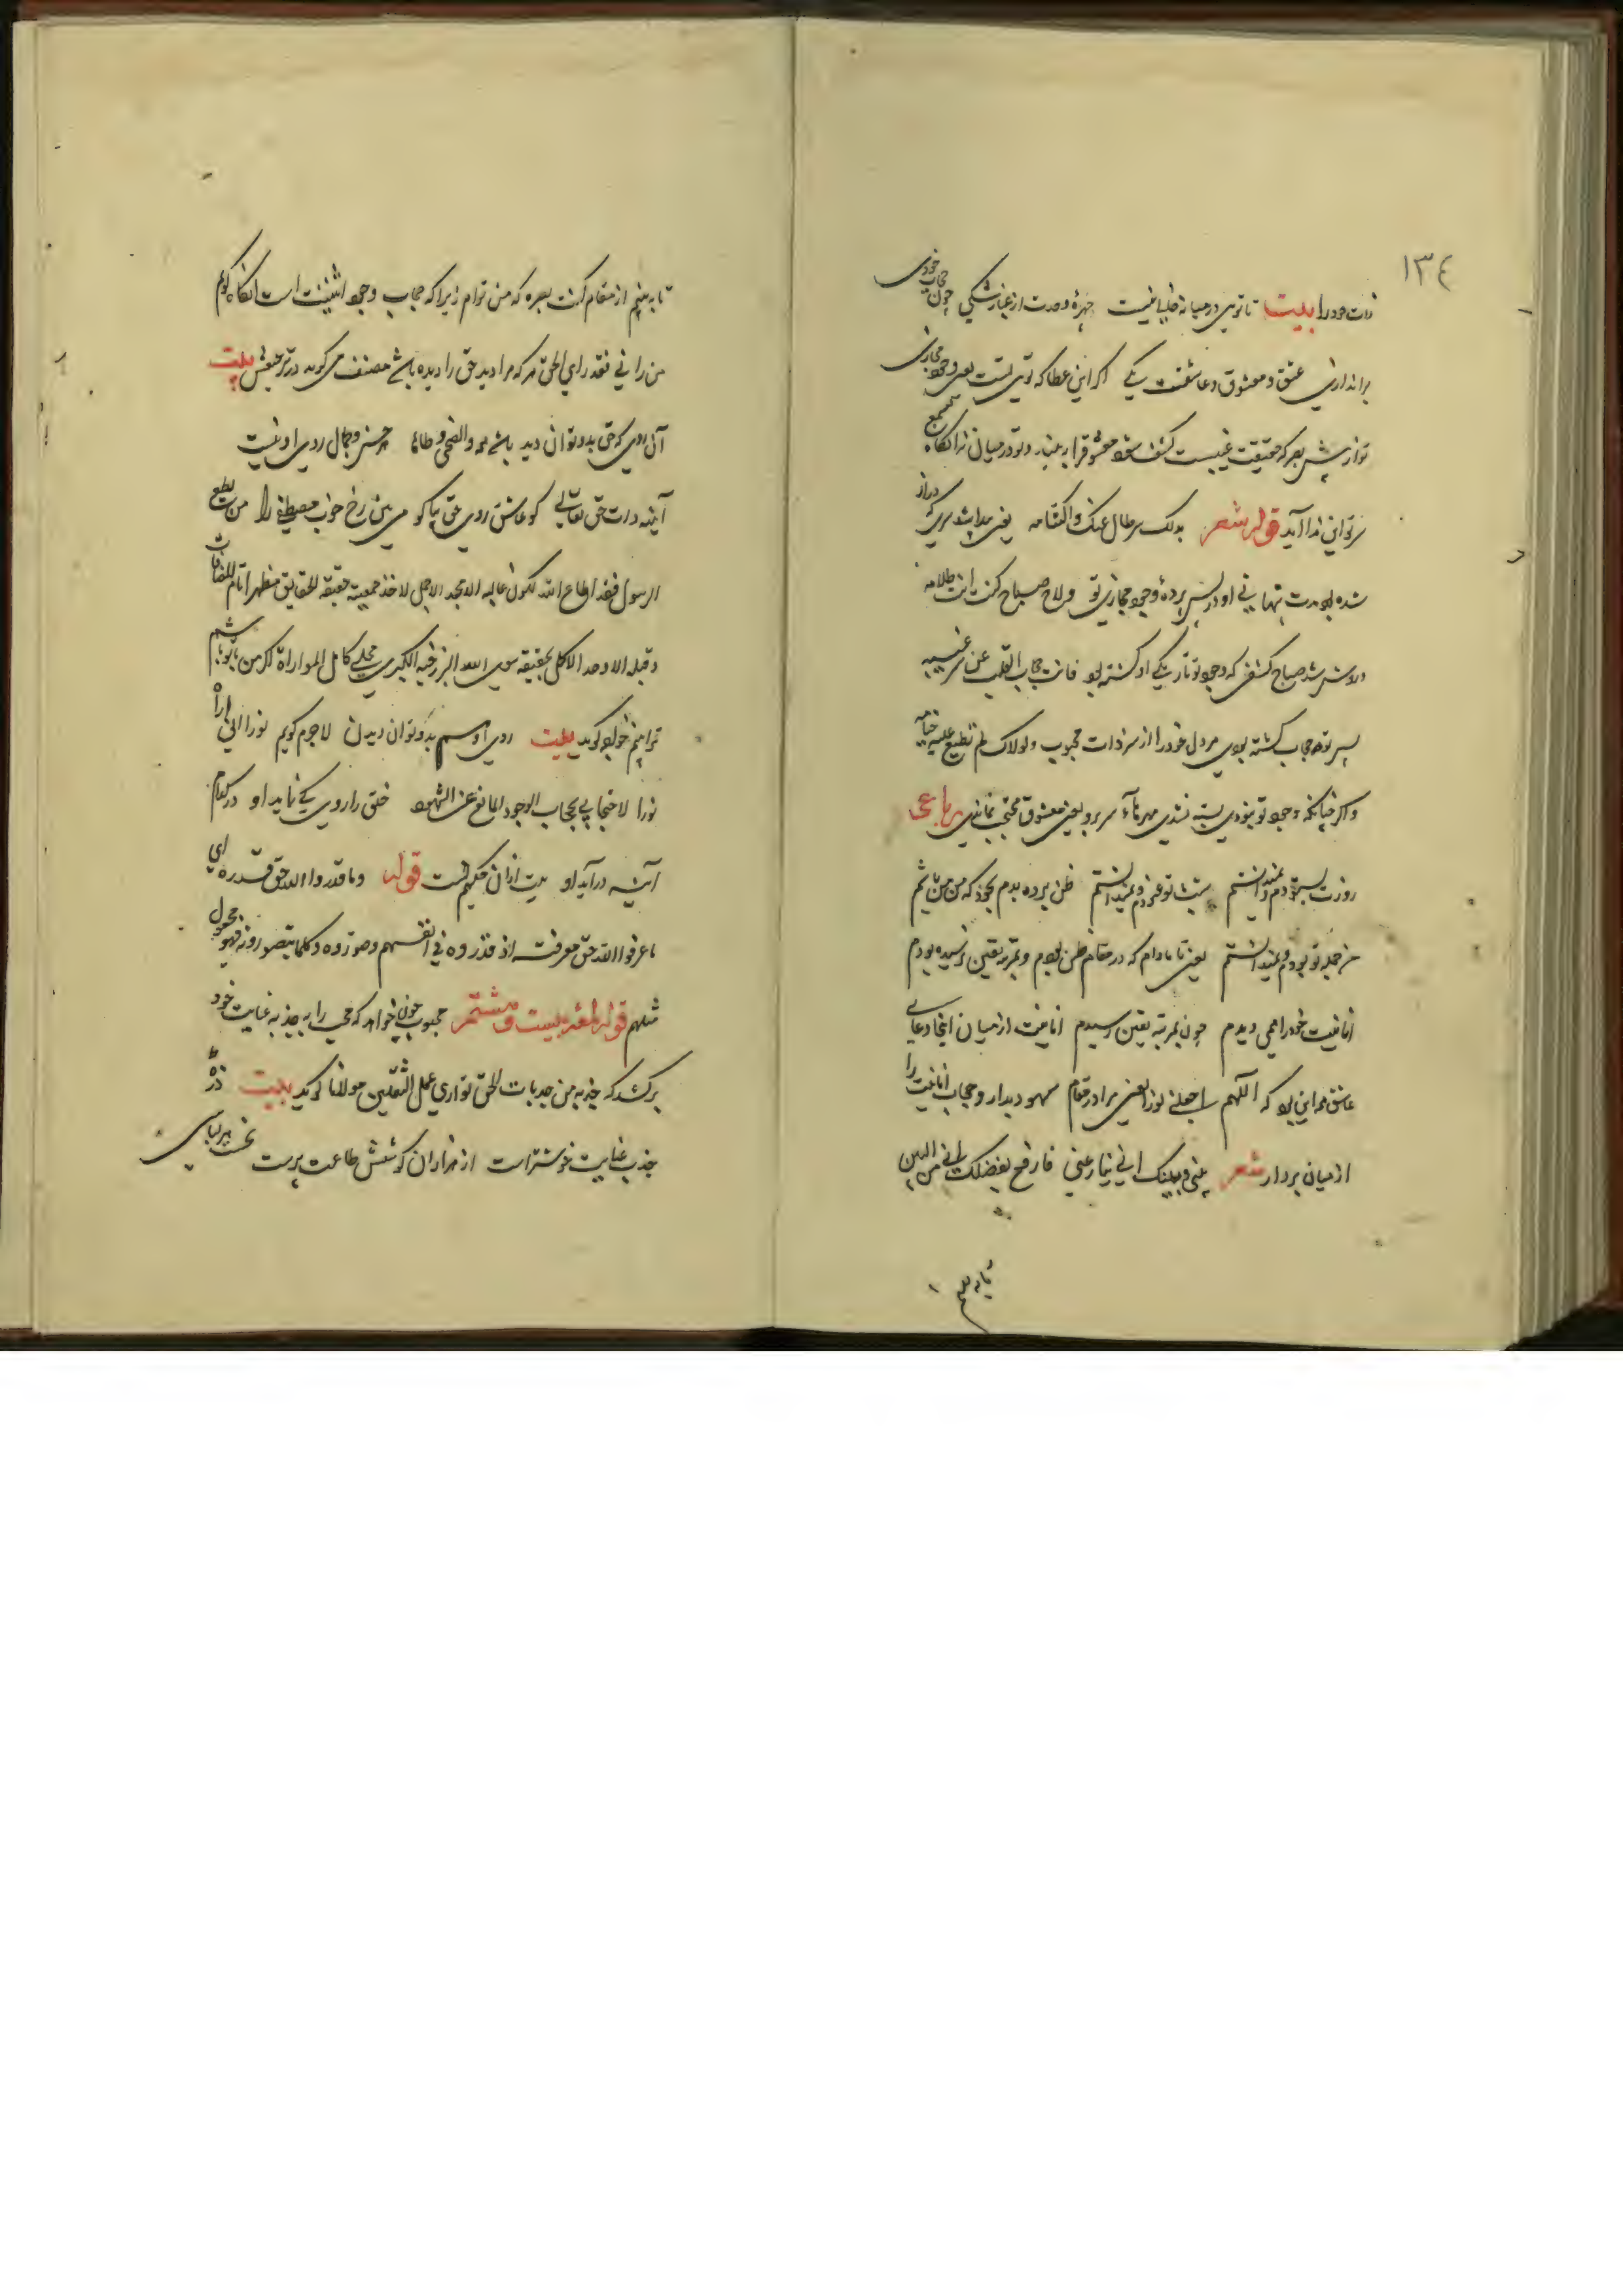 ١٣٤
ذات خود را بیت تا توی در میانه خالی نیست چهرهٔ وحدت از غبار شکی چون حجاب خودی
براندازی عشق و معشوق و عاشقت یکی اگر این عطا که توی تست یعنی وجود مجازی
تو از پیش بصر که حقیقت غیبست کشف شود معشوق را به بیند و تو در میان نه آنگاه بسمع
سر تو این ندا آید قوله شعر بدا لک سر طال عنک اکتتامه یعنی پیدا شد سری که دراز
شده بود مدت پنهانی او در پس پردهٔ وجود مجازی تو و لاح صباح کنت انت ظلامه
و روشن شد صباح کشفی که وجود تو تاریکی او گشته بود فانت حجاب القلب عن سر غیبه
پس تو حجاب گشته بودی مر دل خود را از سر ذات محبوب و لولاک لم تطبع علیه ختامه
و اگر چنانکه وجود تو نبودی بسته نشدی مهر ما بر سر و یعنی معشوق محتجب نماندی رباعی
روزت بستودم و نمیدانستم شب با تو غنودم و نمیدانستم ظن برده بدم بخود که من من باشم
من جمله تو بودم و نمیدانستم یعنی تا مادام که در مقام ظن بودم و بمرتبه یقین نرسیده بودم
انانیت خود را می دیدم چون بمرتبه یقین رسیدم انانیت از میان اینجا دعای
عاشق همه این بود که اللهم اجعلنی نورا یعنی مرا در مقام شهود بدار و حجاب انانیت را
از میان بردار شعر بینی و بینک انی ینازعنی فارفع بفضلک انی من البین
تا به بینم
تا به بینم از مقام کنت بصره که من توام زیرا که حجاب وجود اثنینیت است آنگاه گویم
من رآنی فقد رای الحق هر که مرا دید حق را دیده باشد مصنف می گوید در ترجیعش بیت
آن روی که حق بدو توان دید باشد همه والضحی و طاها جز حسن و جمال روی او نیست
آینه ذات حق تعالی کو عاشق روی حق بیا کو می بین رخ خوب مصطفی را من یطع
الرسول فقد اطاع الله لکون قالبه الامجد الاجمل لاخذ جمعیته حقیقة الحقایق مظهرا تاما للصفات
و قلبه الاوحد الاکمل بحقیقة البرزخیة الکبری مجلی کامل
ترا بینم خواجو گوید بیت روی او هم بدو توان دیدن لاجرم گویم نورا انی اراه
نورا لاحتجابی بحجاب الوجود المانع عن الشهود خلق را روی کی نماید او در کدام
آینه درآید او قوله و ما قدروا الله حق قدره ای
ما عرفوا الله حق معرفته اذ قدروه فی انفسهم و صوروه و کلما یتصورونه فهو مجعول
مثلهم قوله لمعه بیست و ششم محبوب چون خواهد که محب را به جذبه عنایت خود
برکشد که جذبة من جذبات الحق توازی عمل الثقلین مولانا گوید بیت ذره
جذب عنایت خوشتر است از هزاران کوشش طاعت پرست نخست هر لباسی